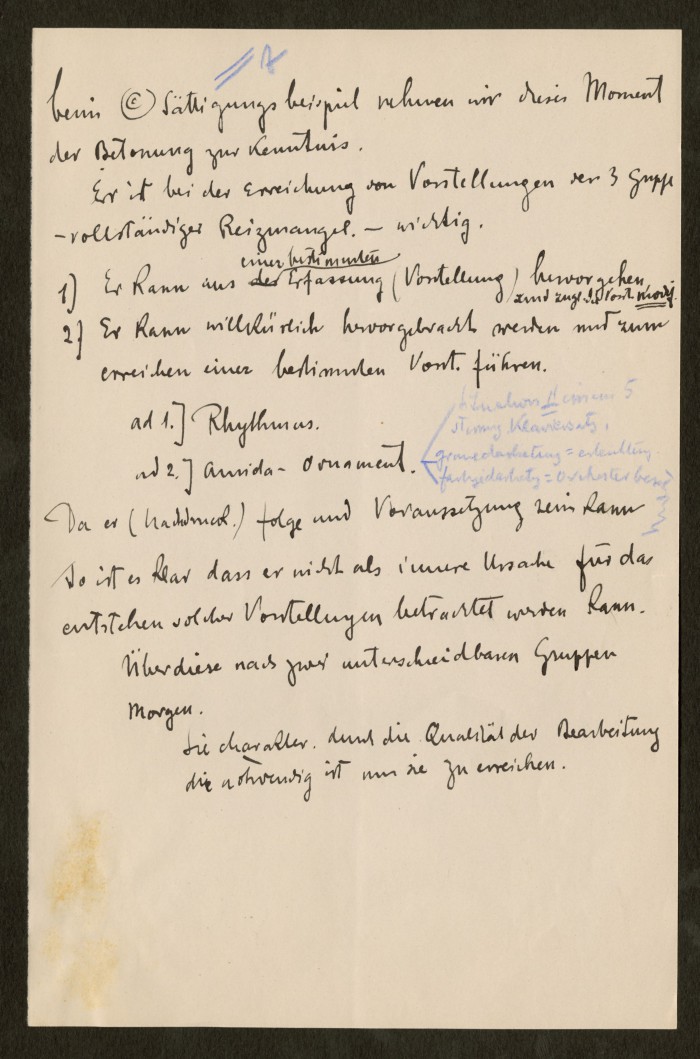 beim (c) Sättigungsbeispiel nehmen wir dieses Moment
der Betonung zur Kenntnis.
Er ist bei der Erreichung von Vorstellungen der 3 Gruppe
– vollständiger Reizmangel. – wichtig.
einer bestimmten
1] Er kann aus der Erfassung (Vorstellung) hervorgehen
und zugl. der Vorst.
2] Er kann willkürlich hervorgebracht werden und zum
erreichen einer bestimmten Vorst. führen.
ad 1.] Rhythmus.
ad 2.] Ornament.
5
Klaviersatz,
=
= Orchester
Da er (Nachdruck.) folge und Voraussetzung sein kann
so ist es klar dass er nicht als innere Ursache für das
entstehen solcher Vorstellungen betrachtet werden kann.
Über diese nach zwei unterscheidbaren Gruppen
Morgen.
Sie charakter. durch die Qualität der Bearbeitung
die notwendig ist um sie zu erreichen.